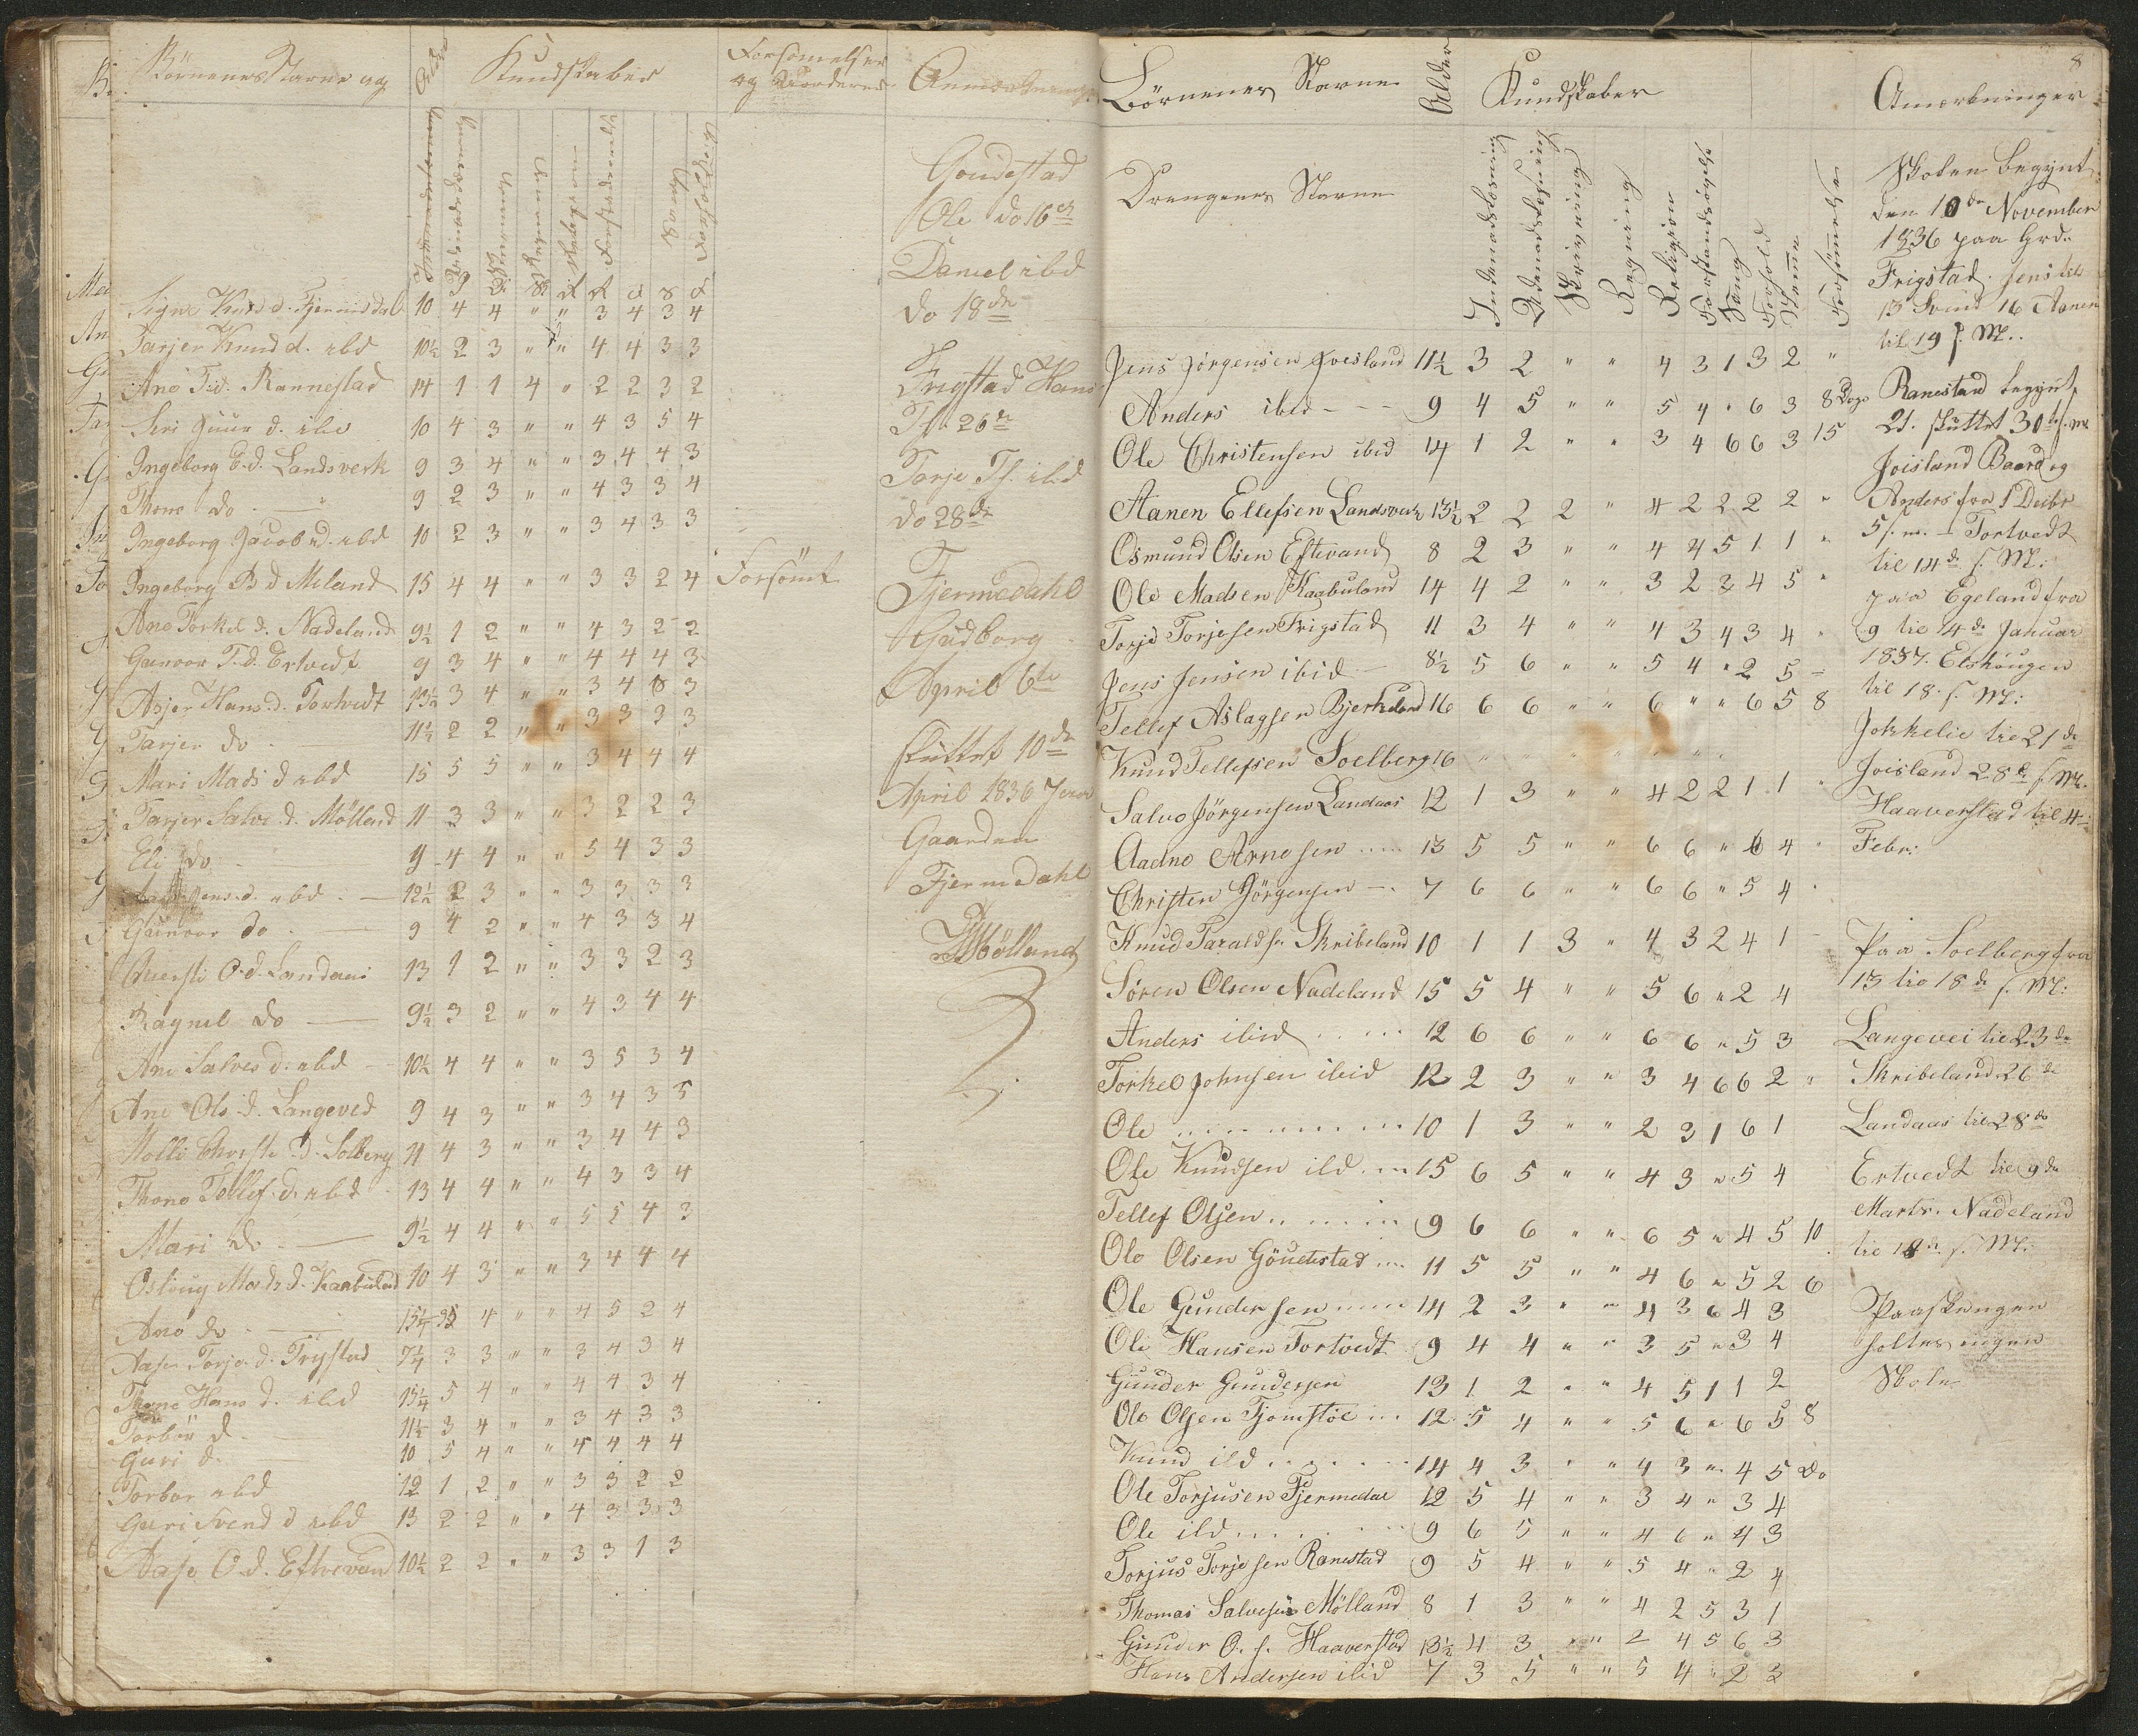 Börnenes Navne og Alder Kundskaber Forsömelser og Anmærkninger
Signe Knud d. Fjermedal 10 4 4 " " 3 4 3 4
Tarjer Knud d. ibd 10½ 2 3 " " 4 4 3 3
Ane T.d. Rannestad 14 1 1 4 " 2 2 3 2
Siri Guur d. ibd 10 4 3 " " 4 3 5 4
Ingeborg E.d. Landsverk 9 3 4 " " 3 4 4 3
Thone do 9 2 3 " " 4 3 3 4
Ingeborg Jacob d. ibd 10 2 3 " " 3 4 3 3
Ingeborg B d Meland 15 4 4 " " 3 3 2 4 Forsömt
Ane Torkel d. Nadeland 9½ 1 2 " " 4 3 2 2
Gunvor T.d. Ertvedt 9 3 4 " " 4 4 4 3
Asjer Hans d. Tortvedt 13½ 3 4 " " 3 4 6 3
Tarjer do 11½ 2 2 " " 3 3 3 3
Mari Mads d ibd 15 5 5 " " 3 4 4 4
Tarjer Salve d. Mölland 11 3 3 " " 3 2 2 3
Eli do 9 4 4 " " 5 4 3 3
Jens d. ibd 12½ 2 3 " " 3 3 3 3
Gunvor do 9 4 2 " " 4 3 3 4
O.d. Landaas 13 1 2 " " 3 3 2 3
Ragnil do 9½ 3 2 " " 4 3 4 4
Ane Salves d. ibd 10½ 4 4 " " 3 5 3 4
Ane Ols d. Langeved 9 4 3 " " 3 4 3 5
d. Solberg 11 4 3 " " 3 4 4 3
Thone Tellef d. ibd 13 4 4 " " 4 3 3 4
Mari do 9½ 4 4 " " 5 5 4 3
Mads d. Kaabuland 10 4 3 " " 3 4 4 4
Ane do 4 " " 4 5 2 4
Aase Torje d. Frigstad 7¼ 3 3 " " 3 4 3 4
Thone Hans d. ibd 13¼ 5 4 " " 4 4 3 4
Torbör d. 11½ 3 4 " " 3 4 3 3
Guri d. 10 5 4 " " 4 4 4 4
Torbor ibd 12 1 2 " " 3 3 2 2
Guri Svend d ibd 13 2 2 " " 4 3 3 3
Aase O.d. Eftevand 10½ 2 2 " " 3 3 1 3
Goudestad
Ole do 16de
Daniel ibd
do 18de
Frigstad Hans
Tf. 26de
Tarje Tf. ibd
do 28de
Fjermedahl
Gudborg
April 6te
sluttet 10de
April 1836
Gaarden
Fjermedahl
Mölland
8
Börnenes Navne Alder Kundskaber Anmærkninger
Drengenes Navne Indenadslæsning Udenadslæsning Skrivning Regning Religion Forstandsøvelse Sang Forhold Nemme Forsömmelse
Jens Jörgensen Joisland 11½ 3 2 " " 4 3 1 3 2 "
Anders ibid 9 4 5 " " 5 4 " 6 3 8 Dage
Ole Christensen ibid 14 1 2 " " 3 4 6 6 3 15
Aanen Ellefsen Landsverk 13½ 2 2 2 " 4 2 2 2 2 "
Osmund Olsen Eftevand 8 2 3 " " 4 4 5 1 1 "
Ole Madsen Kaabuland 14 4 2 " " 3 2 3 4 5 "
Torje Torjesen Frigstad 11 3 4 " " 4 3 4 3 4 "
Jens Jensen ibid 8½ 5 6 " " 5 4 " 2 5 "
Tellef Aslagsen Bjerkeland 16 6 6 " " 6 " " 6 5 8
Knud Tellefsen Soelberg 16 " " " " " " "
Salve Jörgensen Landaas 12 1 3 " " 4 2 2 1 1 "
Aadne Arnesen 13 5 5 " " 6 6 " 6 4 "
Christen Jörgensen 7 6 6 " " 6 6 " 5 4 "
Knud Taraldsen Skribeland 10 1 1 3 " 4 3 2 4 1
Sören Olsen Nadeland 15 5 4 " " 5 6 " 2 4
Anders ibid 12 6 6 " " 6 6 " 5 3
Torkel Johnsen ibid 12 2 3 " " 3 4 6 6 2 "
Ole 10 1 3 " " 2 3 1 6 1
Ole Knudsen ibd 15 6 5 " " 4 3 " 5 4
Tellef Olsen 9 6 6 " " 6 5 " 4 5 10
Ole Olsen Göudestad 11 5 5 " " 4 6 " 5 2 6
Ole Gundersen 14 2 3 " " 4 3 6 4 3
Ole Hansen Tortvedt 9 4 4 " " 3 5 " 3 4
Gunder Gundersen 13 1 2 " " 4 5 1 1 2
Ole Olsen Tjomstöe 12 5 4 " " 5 6 " 6 5 8
Knud ibd 14 4 3 " " 4 3 " 4 5 Do
Ole Torjusen Fjermedal 12 5 4 " " 3 4 " 3 4
Ole ibd 9 6 5 " " 4 6 " 4 3
Torjus Torjesen Ranestad 9 5 4 " " 5 4 " 2 4
Thomas Salvesen Mölland 8 1 3 " " 4 2 5 3 1
Gunder O. s. Haaverstad 13½ 4 3 " " 2 4 5 6 3
Hans Andersen ibid 7 3 5 " " 5 4 " 2 3
Skolen begynt
den 10de November
1836 paa Grd.
Frigstad. Jens til
13 Svend 16 Aanen
til 19 s. M.
Ranestad begynt
21. sluttet 30te s. M
Joisland Baard og
Anders fra 1 Decbr
5 s. m. Tortvedt
til 14de s. M.
paa Egeland fra
9 til 14de Januar
1837. Elshougen
til 18. s. M:
Jokkelie til 21de
Joisland 28de s. M.
Haaverstad til 4
Febr:
Paa Soelberg fra
13 til 18de s. M:
Langevei til 23de
Skribeland 26de
Landaas til 28de
Ertvedt til 9de
Marts. Nadeland
til 18de s. M.
Paaskeugen
holtes ingen
Skole